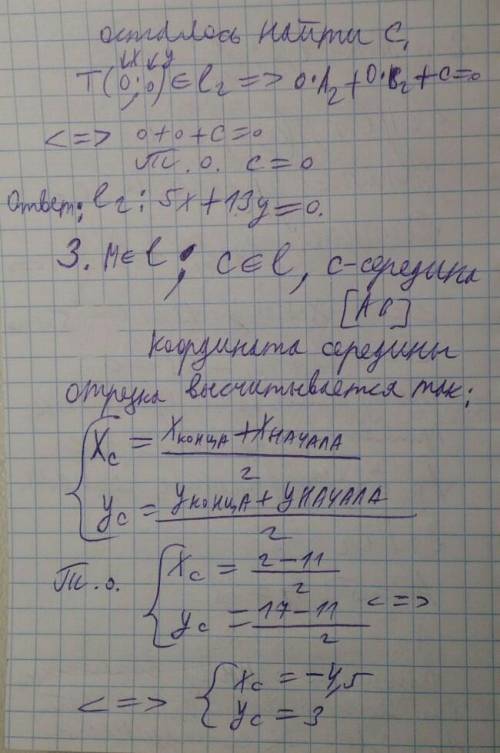 осталось найти C,
x y
T(0;0)∈l₂ => 0·A₂+0·B₂+C=0
<=> 0+0+C=0
Т.о. C=0
Ответ: l₂: 5x+13y=0.
3. M∈l; C∈l, C-середина
[AB]
Координата середины
отрезка высчитывается так:
{ Xc = (Xконца+Xначала)/2
yc = (yконца+yначала)/2
Т.о. { Xc = (2-11)/2
yc = (17-11)/2 <=>
<=> { Xc = -4,5
yc = 3